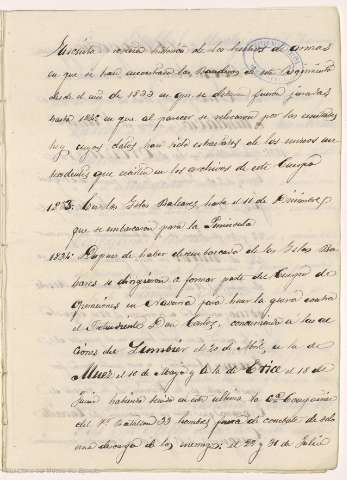 Sucinta reseña histórica de los hechos de armas
en que se han encontrado las Banderas de este Regimiento
desde el año de 1833 en que se fueron juradas
hasta en que al parecer se relevaron por las
hoy, cuyos datos han sido extractados de los unicos
que existen en los archivos de este Cuerpo
1833. En las Islas Baleares, hasta el 11 de Diciembre,
que se embarcaron para la Peninsula
1834. Despues de haber desembarcado de las Islas Ba
leares se dirigieron a formar parte del Cuerpo de
Operaciones en Navarra para hacer la guerra contra
el Pretendiente Don Carlos, concurriendo a las ac
ciones de Lumbier el 20 de Abril, a la de
Muez el 10 de Mayo y a la de Erice el 18 de
Junio habiendo tenido en esta ultima la 6ª Compañia
del 1º Batallon 33 hombres fuera de combate de solo
una descarga de los enemigos; el 29 y 31 de Julio